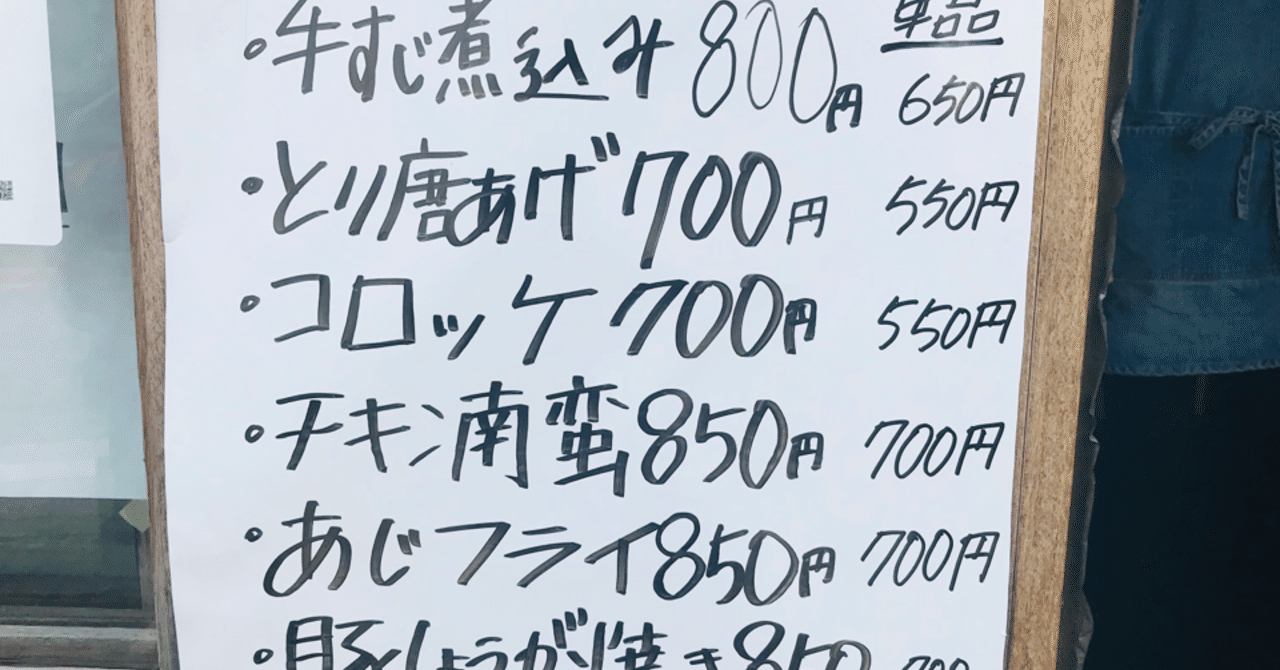 単品
・牛すじ煮込み 800円 650円
・とり唐あげ 700円 550円
・コロッケ 700円 550円
・チキン南蛮 850円 700円
・あじフライ 850円 700円
・豚しょうが焼き 850 700